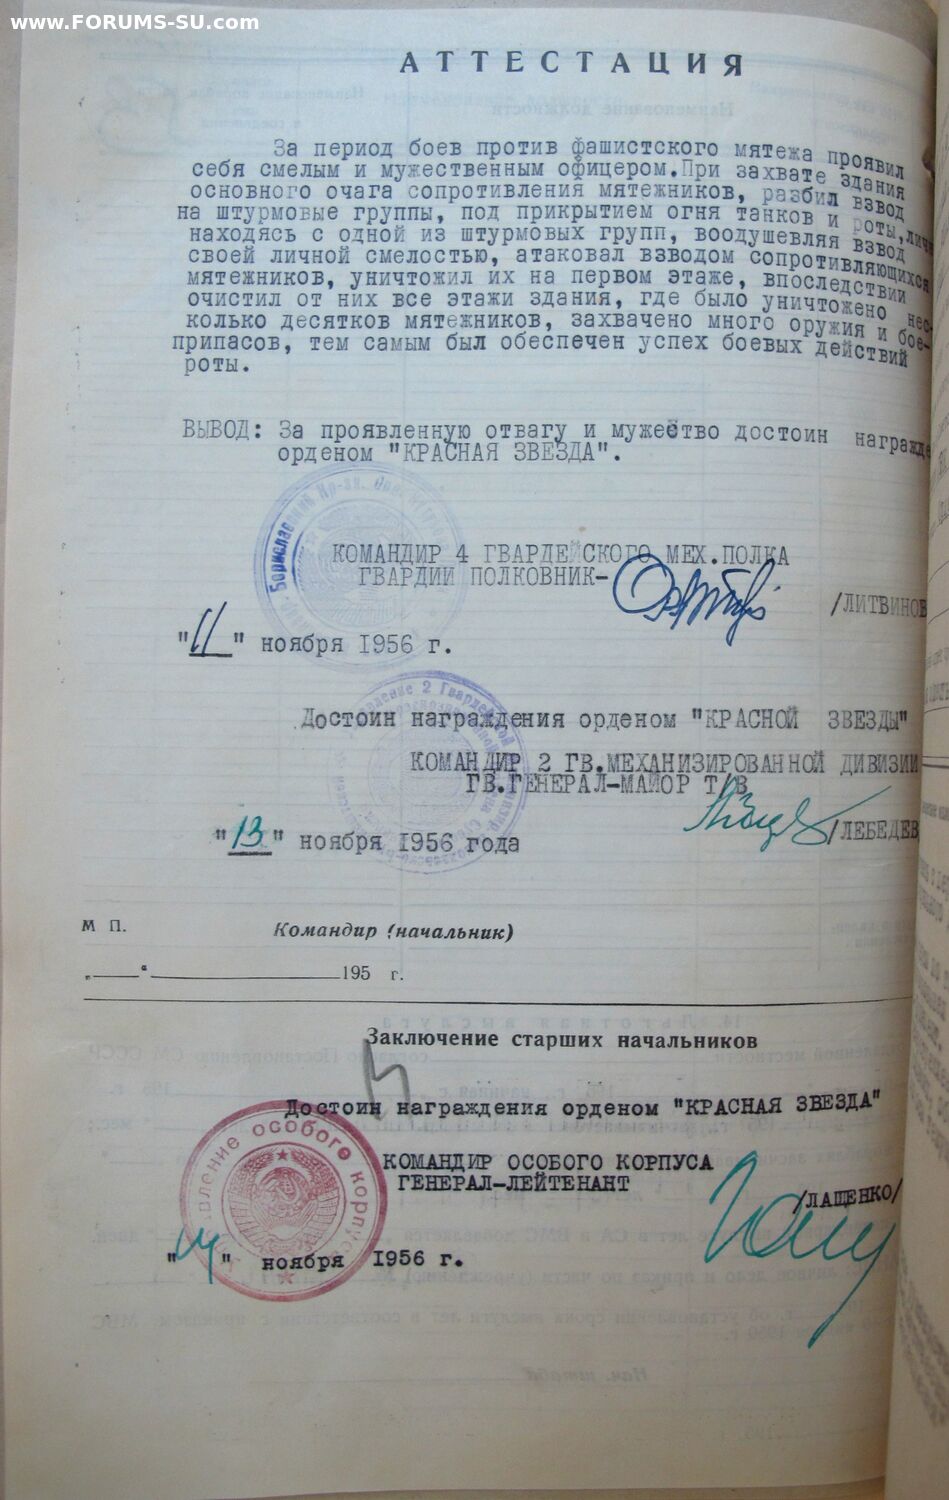 www.FORUMS-SU.com
АТТЕСТАЦИЯ
За период боев против фашистского мятежа проявил
себя смелым и мужественным офицером.При захвате здания
основного очага сопротивления мятежников, разбил взвод
на штурмовые группы, под прикрытием огня танков и роты,лич
находясь с одной из штурмовых групп, воодушевляя взвод
своей личной смелостью, атаковал взводом сопротивляющихся
мятежников, уничтожил их на первом этаже, впоследствии
очистил от них все этажи здания, где было уничтожено нес-
колько десятков мятежников, захвачено много оружия и бое-
припасов, тем самым был обеспечен успех боевых действий
роты.
ВЫВОД: За проявленную отвагу и мужество достоин награжде
орденом "КРАСНАЯ ЗВЕЗДА".
КОМАНДИР 4 ГВАРДЕЙСКОГО МЕХ.ПОЛКА
ГВАРДИИ ПОЛКОВНИК-
/ЛИТВИНОВ
"11" ноября 1956 г.
Достоин награждения орденом "КРАСНОЙ ЗВЕЗДЫ"
КОМАНДИР 2 ГВ.МЕХАНИЗИРОВАННОЙ ДИВИЗИИ
ГВ.ГЕНЕРАЛ-МАЙОР Т/В
/ЛЕБЕДЕВ
"13" ноября 1956 года
М П.
Командир (начальник)
„___“ 195 г.
Заключение старших начальников
Достоин награждения орденом "КРАСНАЯ ЗВЕЗДА"
КОМАНДИР ОСОБОГО КОРПУСА
ГЕНЕРАЛ-ЛЕЙТЕНАНТ
/ЛАЩЕНКО/
"14" ноября 1956 г.
особого корпуса